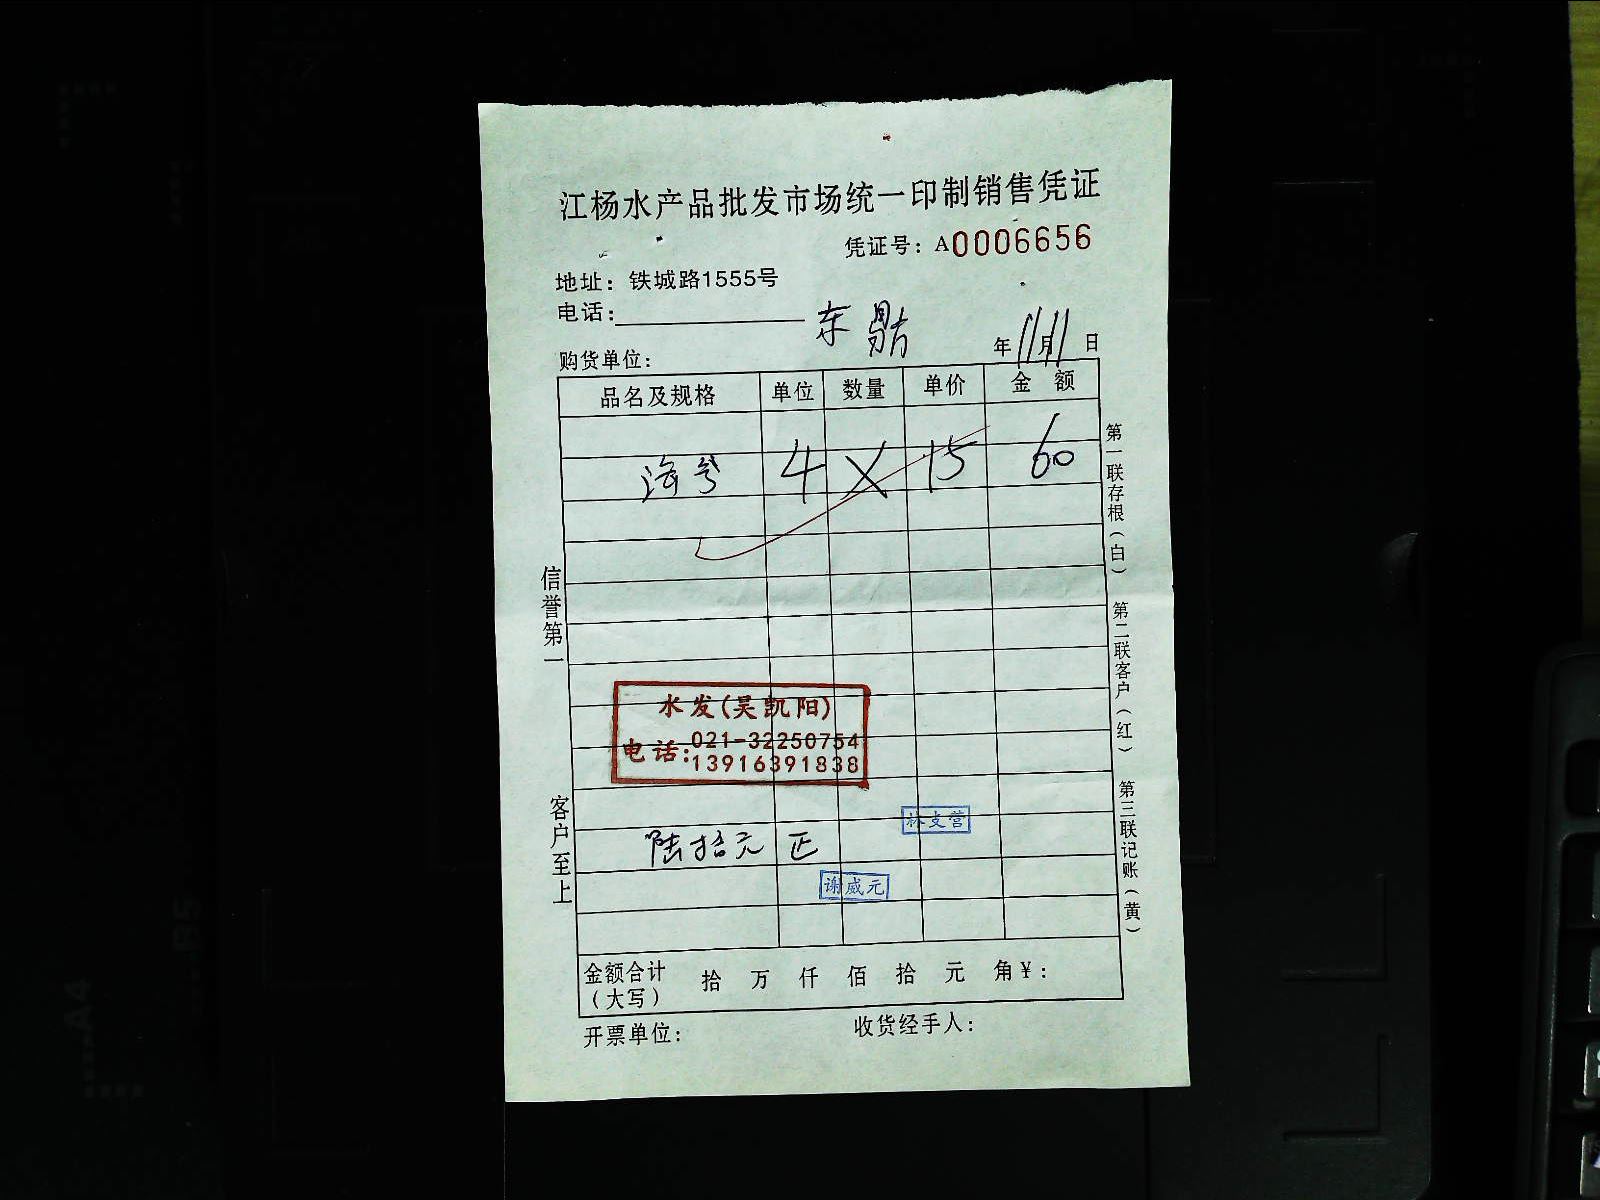 江杨水产品批发市场统一印制销售凭证
凭证号：A0006656
地址：铁城路1555号
电话：
东
年11月11日
购货单位：
品名及规格 单位 数量 单价 金额
海 4 X 15 60
信誉第一
客户至上
水发(吴凯阳)
电话:021-32250754
13916391838
林支营
陆拾元正
谢威元
金额合计（大写） 拾 万 仟 佰 拾 元 角￥：
开票单位： 收货经手人：
第一联存根（白） 第二联客户（红） 第三联记账（黄）